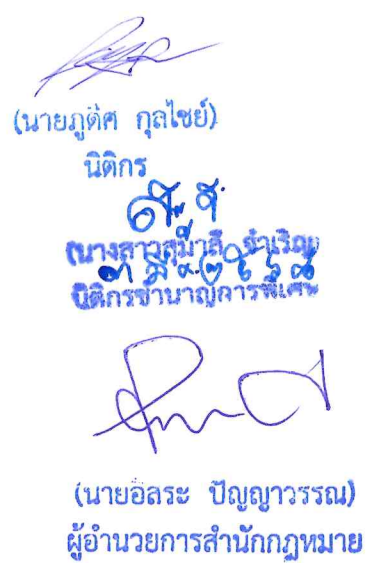 (นายภูดิศ กุลไชย์)
นิติกร
(นางสาวสุมาลี จำเริญ)
นิติกรชำนาญการพิเศษ
(นายอิสระ ปัญญาวรรณ)
ผู้อำนวยการสำนักกฎหมาย